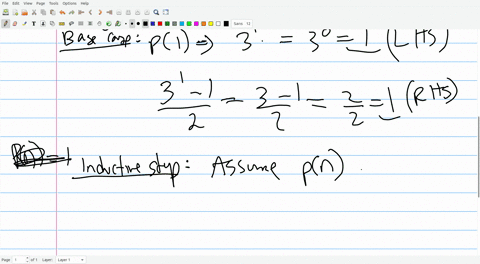 File Edit View Journal Page Tools Options Help
Base case: P(1) ⇒ 3 = 3⁰ = 1 (LHS)
(3¹ − 1)/2 = (3 − 1)/2 = 2/2 = 1 (RHS)
Inductive step: Assume p(n)
Page 1 of 1 Layer: Layer 1